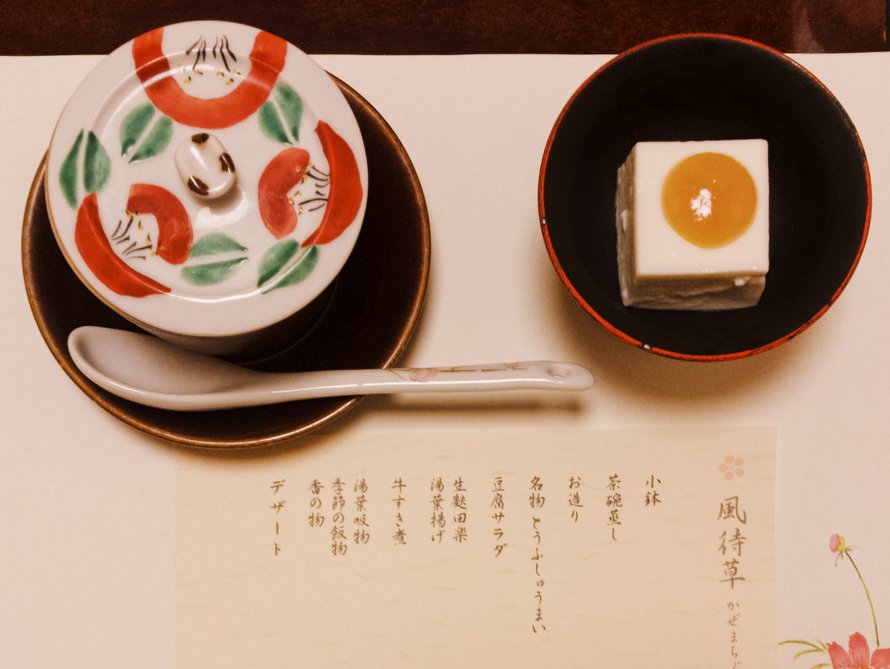 風待草 かぜまち
小鉢
茶碗蒸し
お造り
名物 とうふしゅうまい
豆腐サラダ
生麩田楽
湯葉揚げ
牛すき煮
湯葉吸物
季節の飯物
香の物
デザート